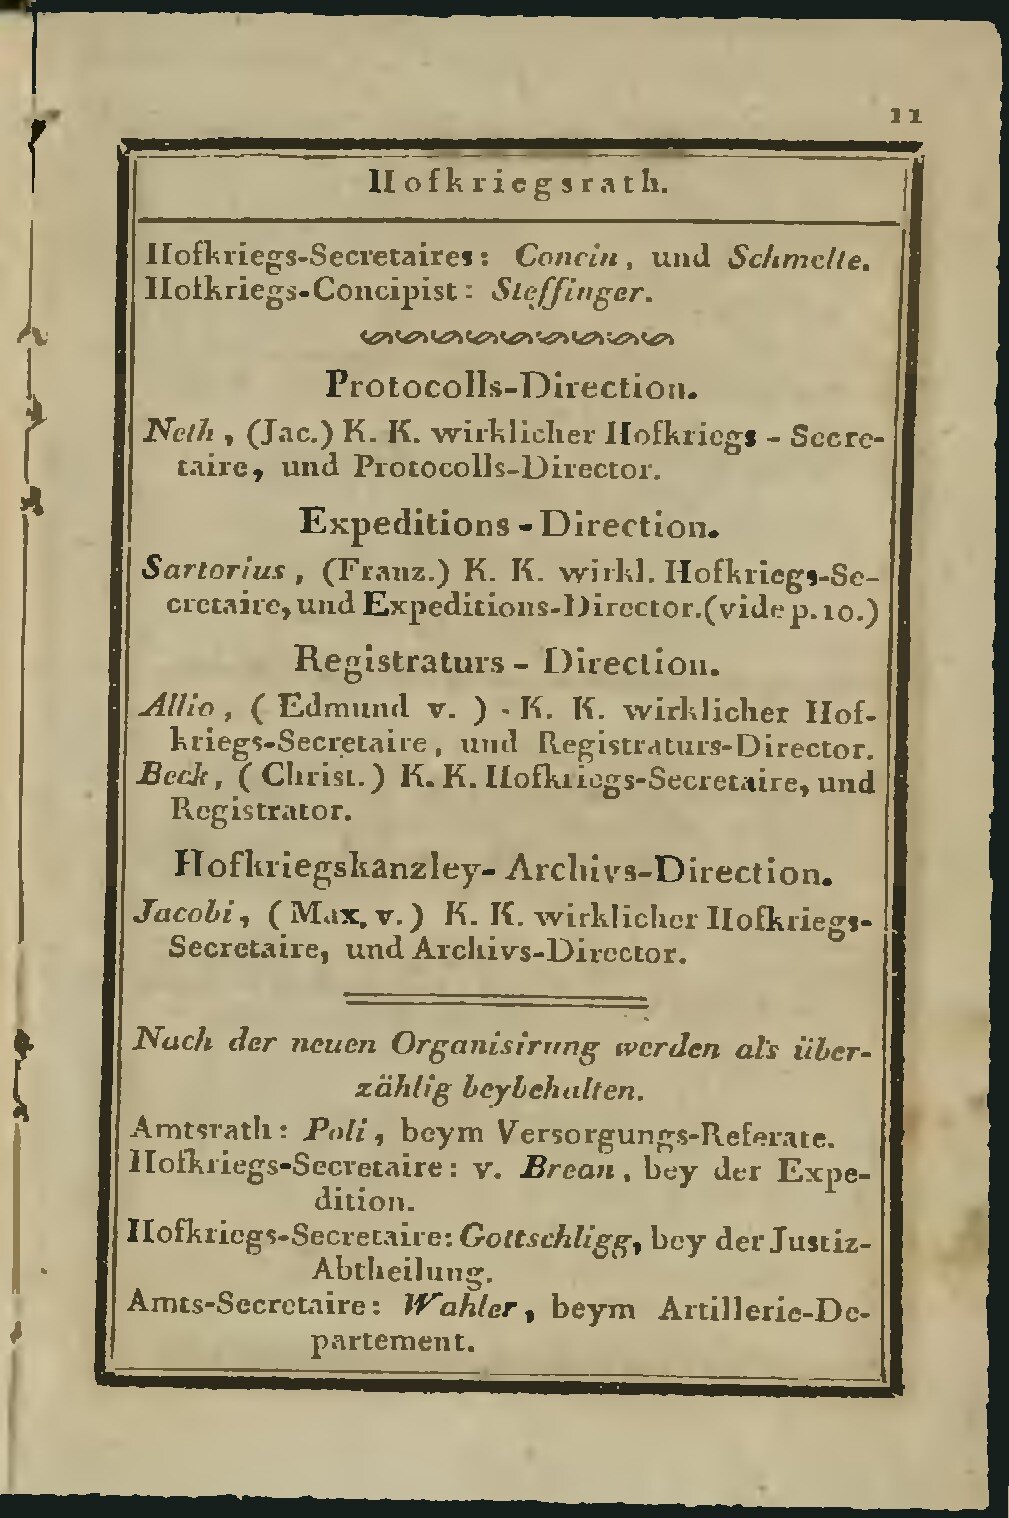 11
Hofkriegsrath.
Hofkriegs-Secretaires: Concin, und Schmelle.
Hofkriegs-Concipist: Steffinger.
Protocolls-Direction.
Neth, (Jac.) K. K. wirklicher Hofkriegs-Secre-
taire, und Protocolls-Director.
Expeditions-Direction.
Sartorius, (Franz.) K. K. wirkl. Hofkriegs-Se-
cretaire, und Expeditions-Director. (vide p. 10.)
Registraturs-Direction.
Allio, (Edmund v.) K. K. wirklicher Hof-
kriegs-Secretaire, und Registraturs-Director.
Beck, (Christ.) K. K. Hofkriegs-Secretaire, und
Registrator.
Hofkriegskanzley-Archivs-Direction.
Jacobi, (Max. v.) K. K. wirklicher Hofkriegs-
Secretaire, und Archivs-Director.
Nach der neuen Organisirung werden als über-
zählig beybehalten.
Amtsrath: Poli, beym Versorgungs-Referate.
Hofkriegs-Secretaire: v. Brean, bey der Expe-
dition.
Hofkriegs-Secretaire: Gottschligg, bey der Justiz-
Abtheilung.
Amts-Secretaire: Wahler, beym Artillerie-De-
partement.